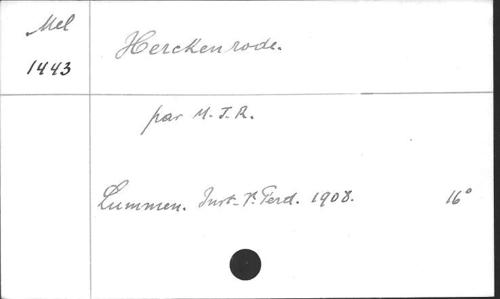 Mel
1443
Herckenrode.
par M. J. R.
Lummen. Inst. V. Ferd. 1908. 16°